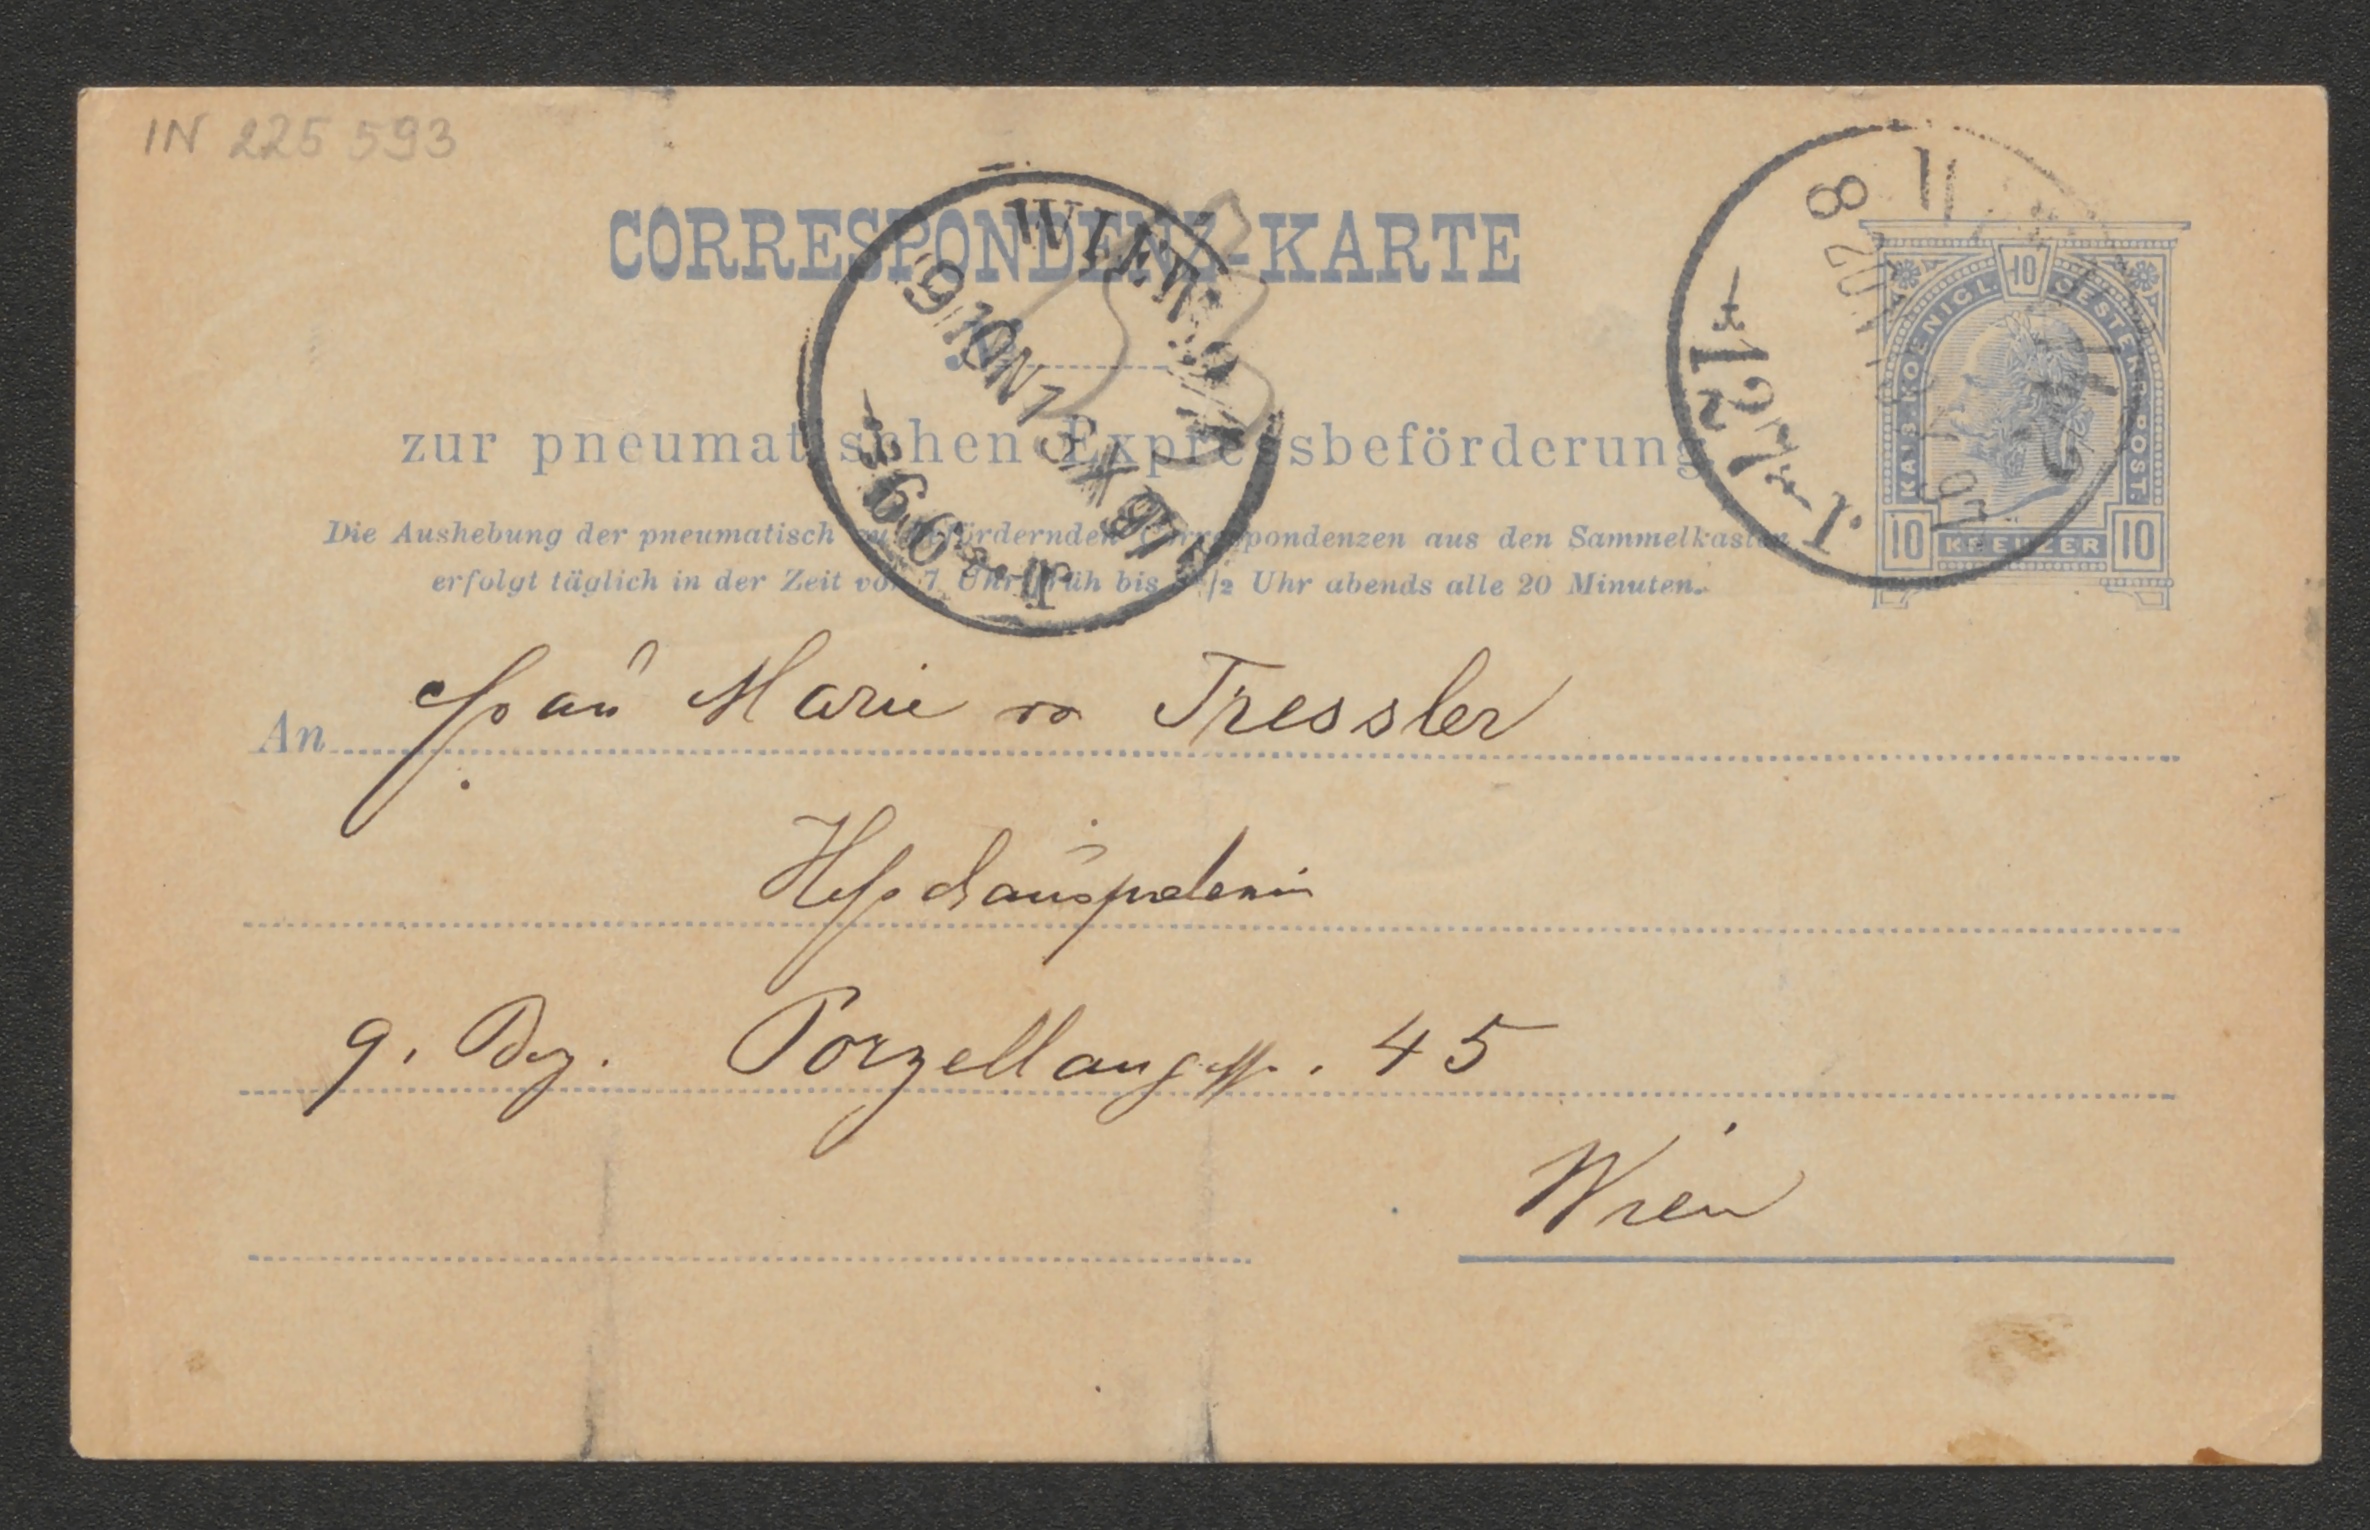 IN 225 593
CORRESPONDENZ-KARTE
zur pneumatischen Expressbeförderung
Die Aushebung der pneumatisch zu befördernden Correspondenzen aus den Sammelkasten
erfolgt täglich in der Zeit von 7 Uhr früh bis 1/2 Uhr abends alle 20 Minuten.
WIEN 9/1
9 10N
66
8 20N
127
97
KAIS. KOENIGL. OESTERR. POST.
10
10 KREUZER 10
An Frau Marie v Tressler
Hofschauspielerin
9. Bez. Porzellangasse. 45
Wien